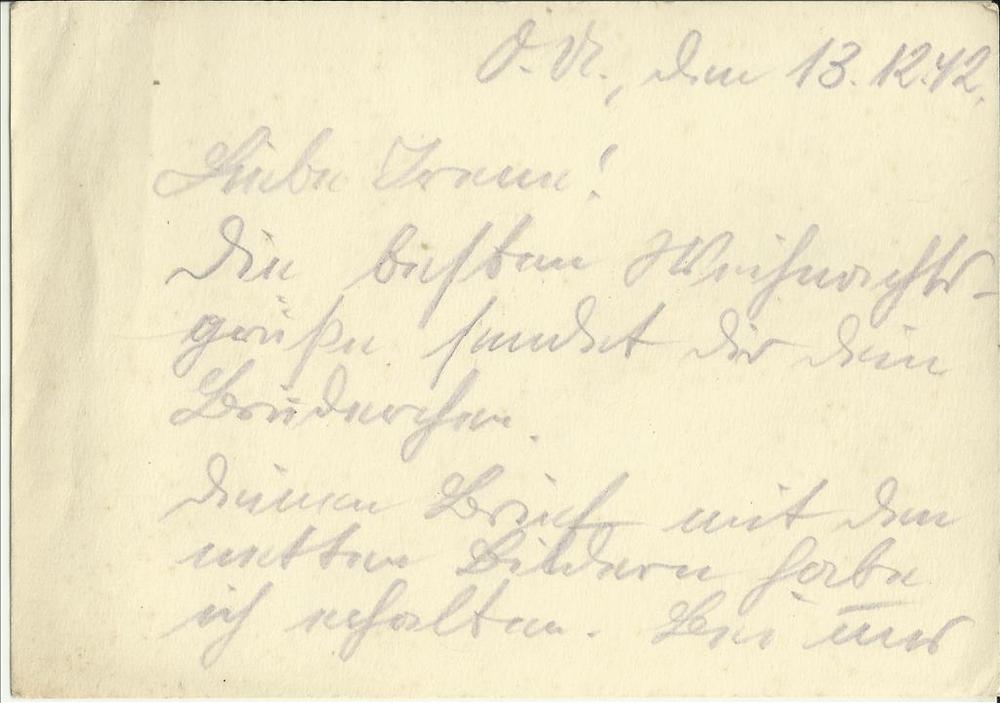 O.U., den 13.12.42.
Liebe Irene!
Die besten Weihnachts-
grüße sendet dir dein
Brüderchen.
Deinen Brief mit den
netten Bildern habe
ich erhalten. Bei uns